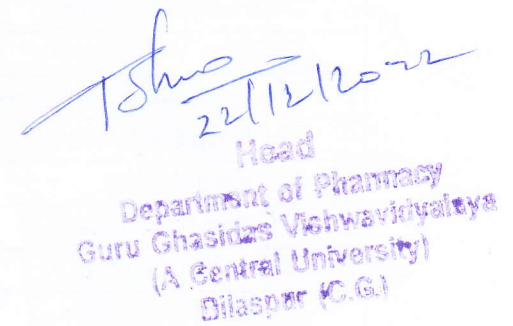 22/12/2022
Head
Department of Pharmacy
Guru Ghasidas Vishwavidyalaya
(A Central University)
Bilaspur (C.G.)